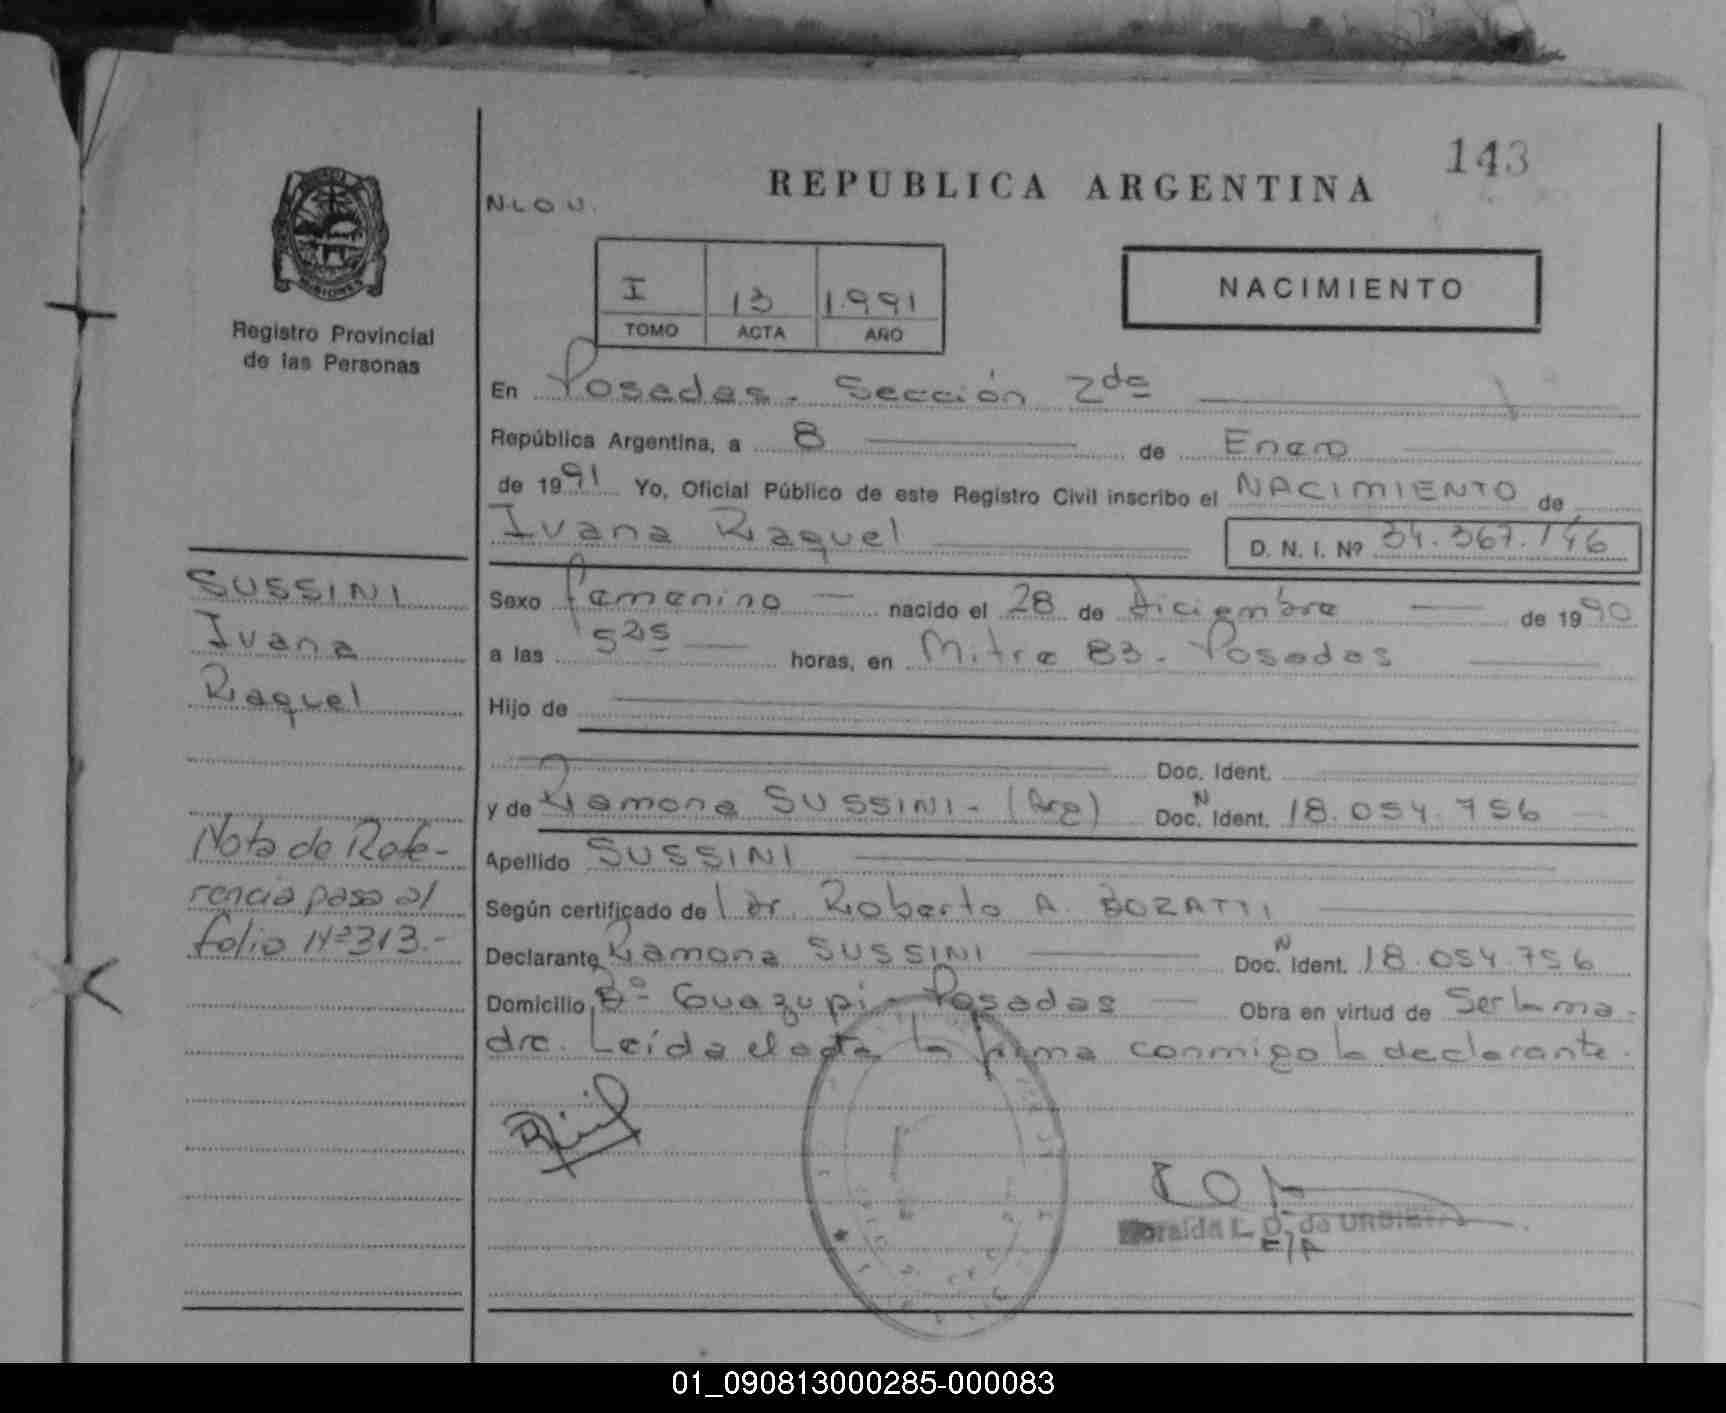 143
REPUBLICA ARGENTINA
N.L.O.U.
MISIONES
Registro Provincial
de las Personas
I 13 1.991
TOMO ACTA AÑO
NACIMIENTO
En Posadas - Sección 2da
República Argentina, a 8 de Enero
de 1991 Yo, Oficial Público de este Registro Civil inscribo el NACIMIENTO de
Ivana Raquel D. N. I. Nº 34.367.146
SUSSINI
Ivana
Raquel
Sexo femenino nacido el 28 de diciembre de 1990
a las 525 horas, en Mitre 83 - Posadas
Hijo de
Doc. Ident.
y de Ramona SUSSINI - (Arg) Doc. N Ident. 18.054.756
Apellido SUSSINI
Nota de Refe-
rencia pasa al
folio Nº 313.-
Según certificado de l dr. Roberto A. BOZATTI
Declarante Ramona SUSSINI Doc. N Ident. 18.054.756
Domicilio Bº Guazupi - Posadas Obra en virtud de Ser la ma-
dre. Leída el acta la firma conmigo la declarante.
L. D. de
01_090813000285-000083